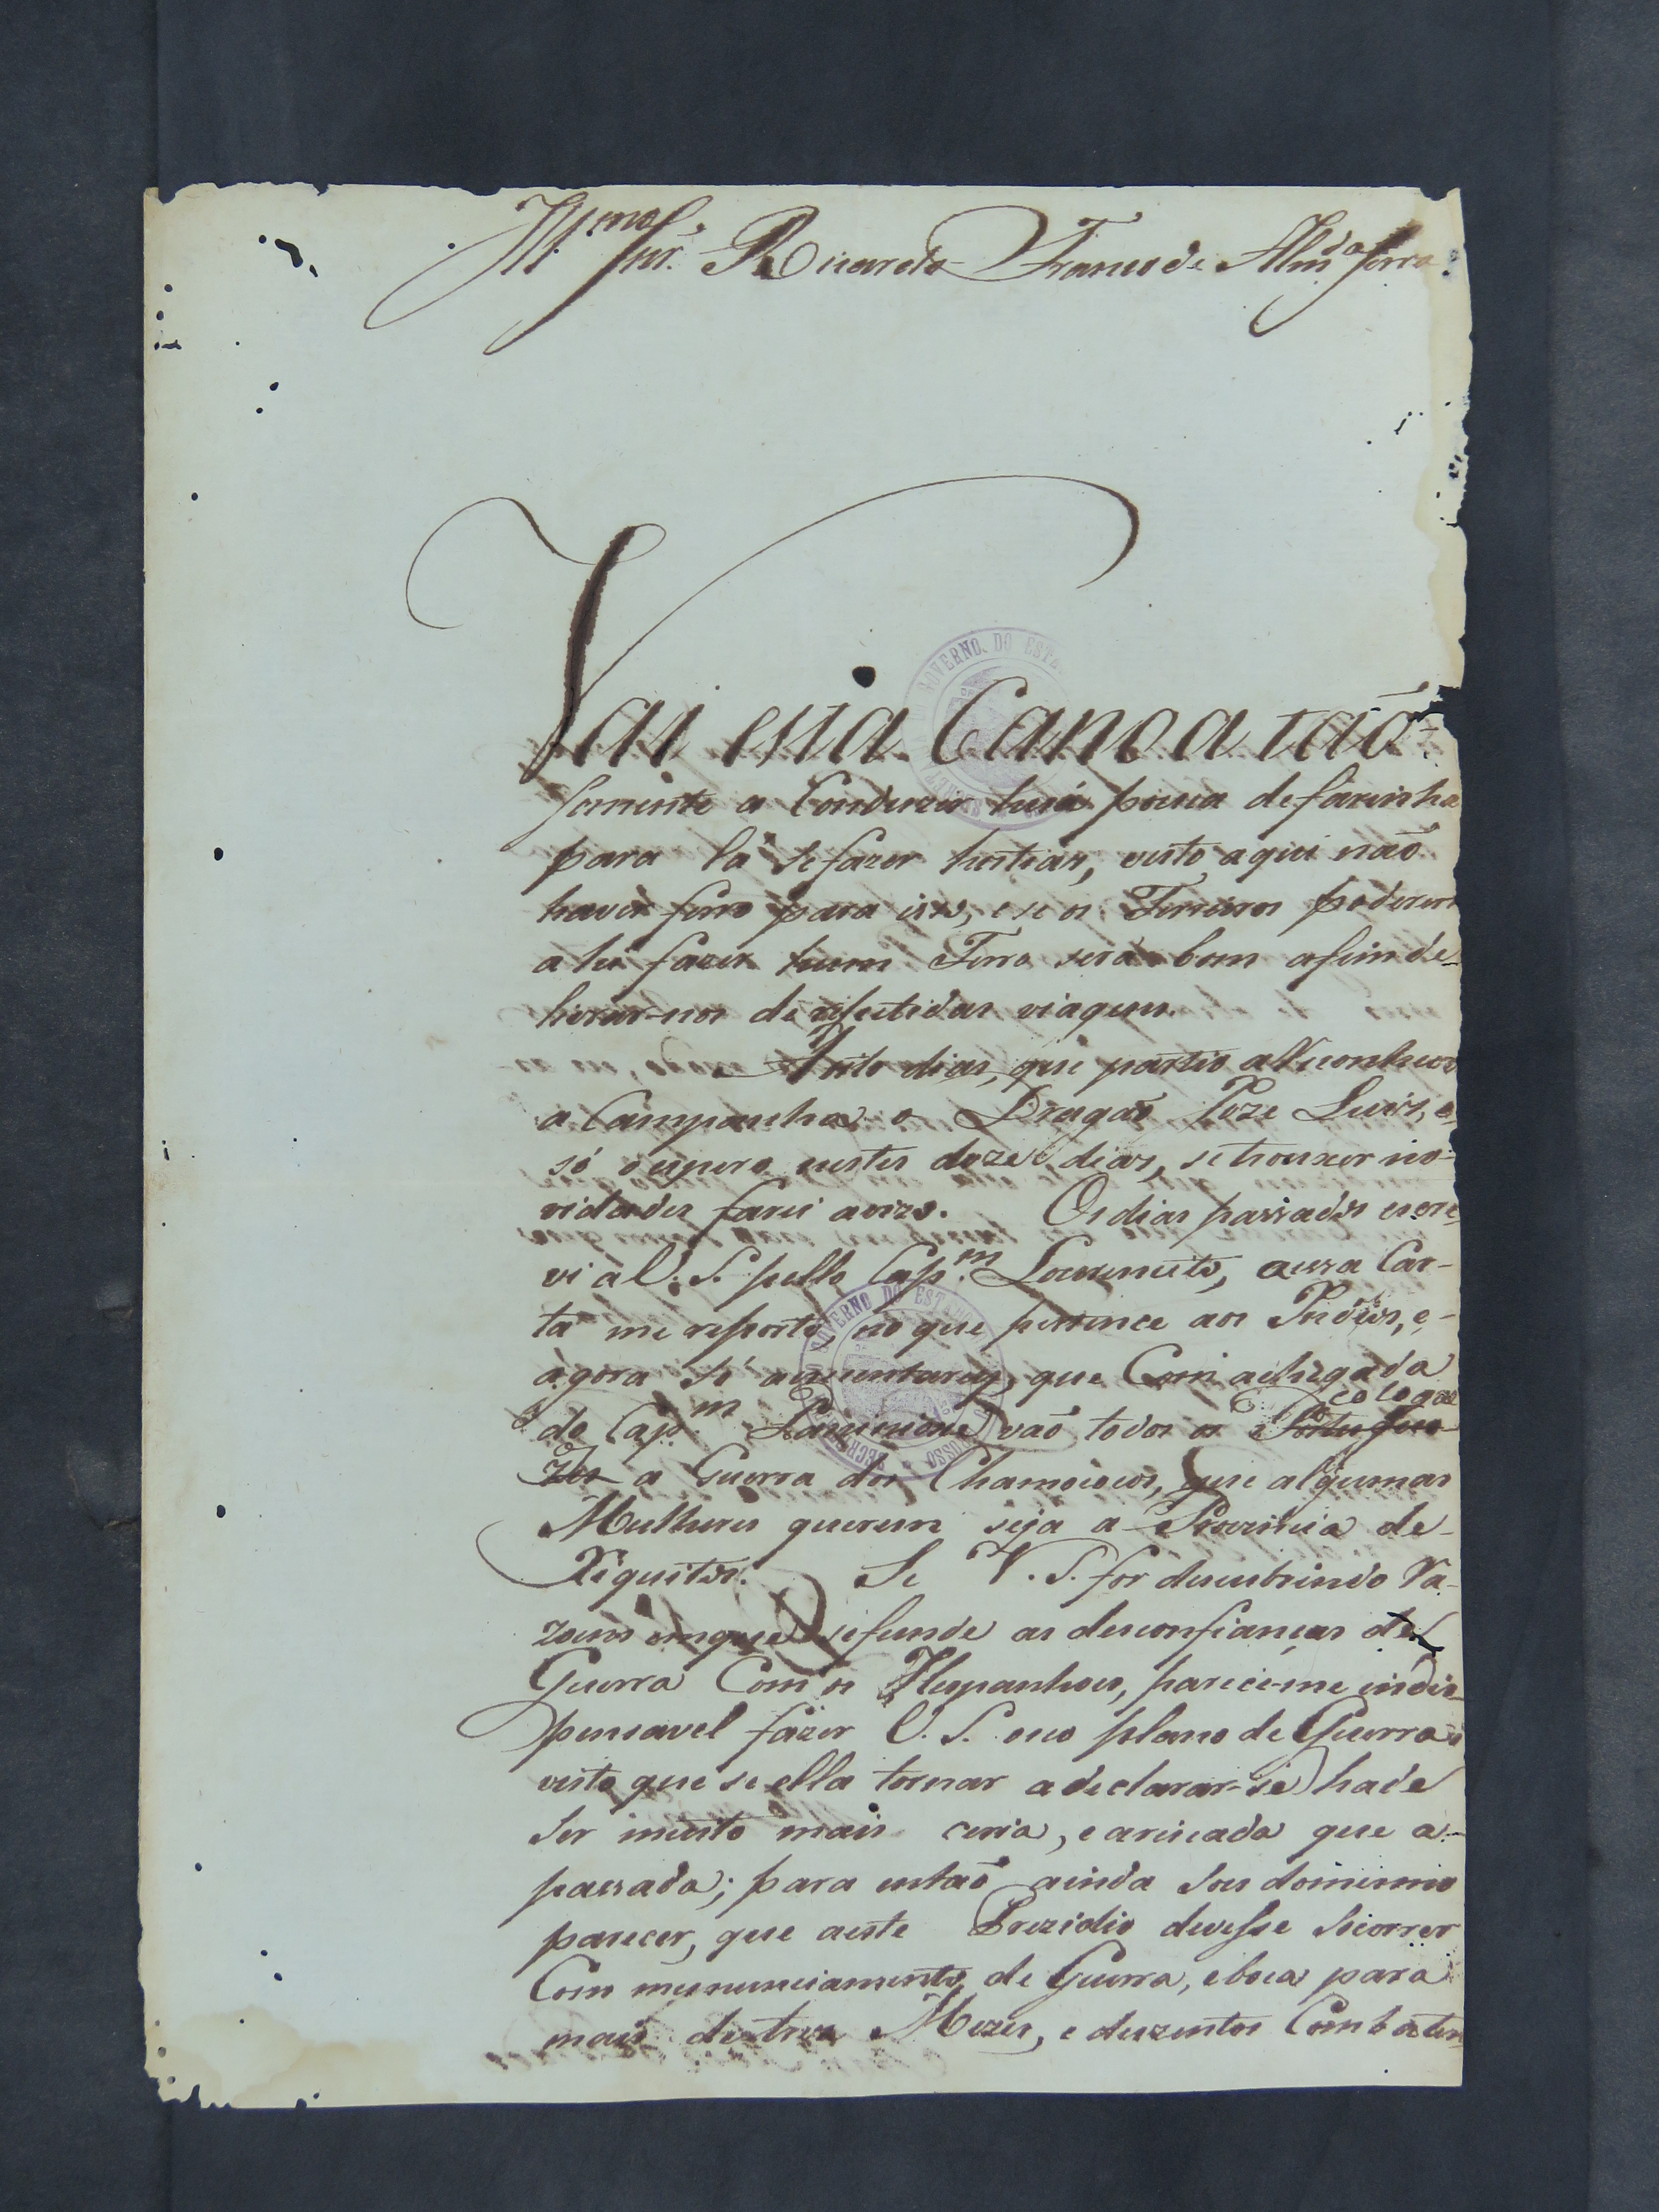 Ill.mo Snr. Ricardo Franco de Alm.da Serra
Vai esta Canoa taõ
somente a Conduzir huã pouca de farinha
para lá se fazer hostias, visto aqui naõ
haver ferro para isso, e se os Ferreiros poderem
ahi fazer hum Ferro será bom afim de
livrar-nos de repetidas viagens.
Oito dias, que partio a
a Campanha o Dragaõ Joze Luis, e
só o espero nestes doze dias, se trouxer no-
vidades farei avizo. Os dias passados escre
vi a V. S. pello Cap.m Lourencito, a essa Car-
ta me reporto, no que pertence aos Indios, e
agora só acrescentarey, que Com a chegada
do Cap.m vaõ todos os Portugue-
zes a Guerra dos Chamocos, que algumas
Mulheres querem seja a Provincia de
Xiquitos. Se V. S. for descubrindo Ra-
zoens em que se funde as desconfianças de
Guerra Com os Hespanhoes, parece-me indis-
pensavel fazer V. S. seo plano de Guerra
visto que se ella tornar a declarar-se hade
ser muito mais ceria, e ariscada que a
passada; para entaõ ainda sou do mesmo
parecer, que a este Prezidio devesse socorrer
Com municiamento de Guerra, e boca para
mais de tres Mezes, e duzentos Combaten
GOVERNO DO ESTADO
GOVERNO DO ESTADO